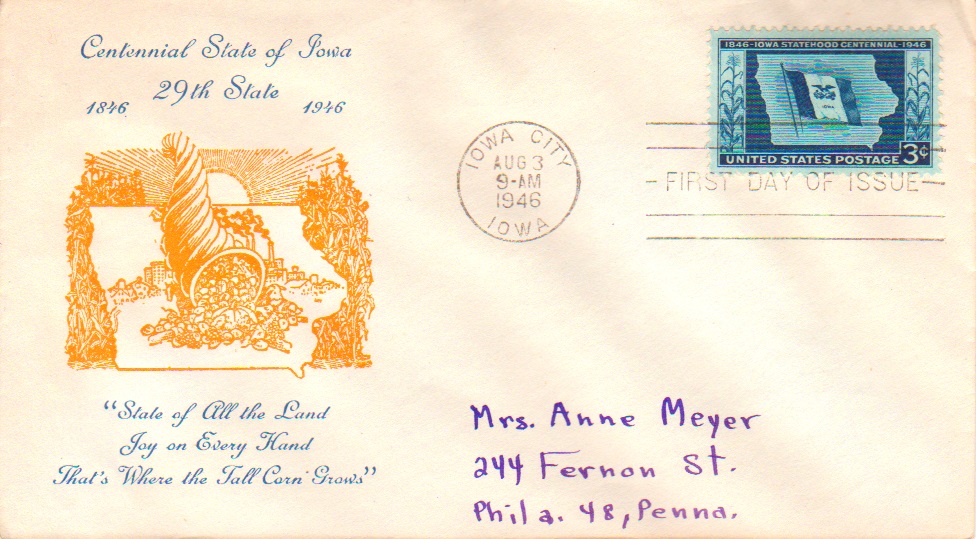 Centennial State of Iowa
29th State
1846 1946
1846-IOWA STATEHOOD CENTENNIAL-1946
UNITED STATES POSTAGE 3¢
IOWA CITY
AUG 3
9-AM
1946
IOWA
FIRST DAY OF ISSUE
"State of All the Land
Joy on Every Hand
That's Where the Tall Corn Grows"
Mrs. Anne Meyer
244 Fernon St.
Phila. 48, Penna.